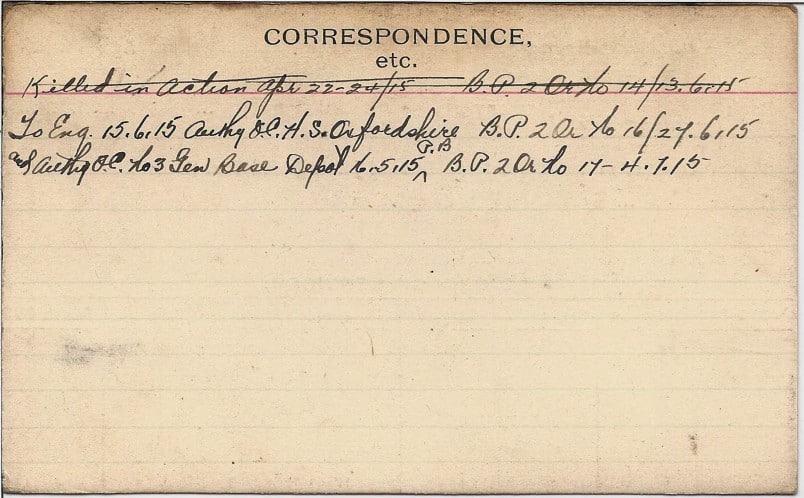 CORRESPONDENCE,
etc.
Killed in Action Apr 22-24/15 B.P. 2 Or No 14/13.6.15
To Eng. 15.6.15 Authy O.C. H.S. Oxfordshire B.P. 2 Or No 16/27.6.15
Authy O.C. No 3 Gen Base Depot 16.5.15 P.B B.P. 2 Or No 17-4.7.15